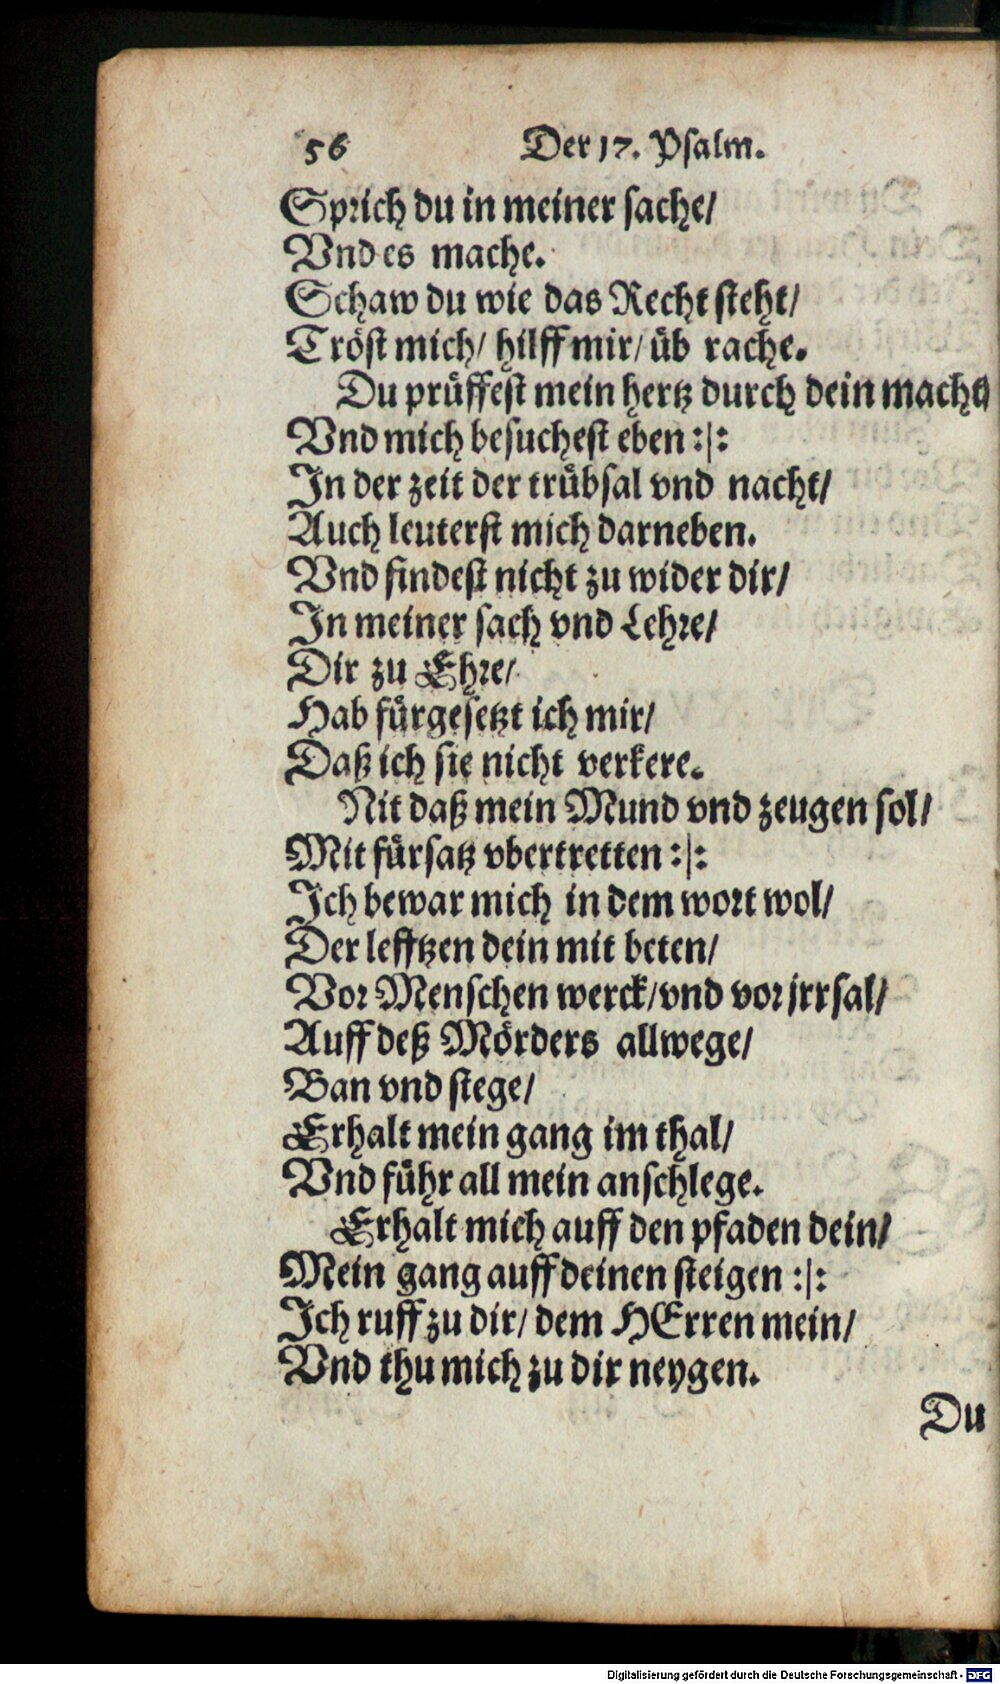 56 Der 17. Psalm.
Sprich du in meiner sache/
Vnd es mache.
Schaw du wie das Recht steht/
Tröst mich/ hilff mir/ üb rache.
Du prüffest mein hertz durch dein macht/
Vnd mich besuchest eben :|:
In der zeit der trübsal vnd nacht/
Auch leuterst mich darneben.
Vnd findest nicht zu wider dir/
In meiner sach vnd Lehre/
Dir zu Ehre/
Hab fürgesetzt ich mir/
Daß ich sie nicht verkere.
Nit daß mein Mund vnd zeugen sol/
Mit fürsatz vbertretten :|:
Ich bewar mich in dem wort wol/
Der lefftzen dein mit beten/
Vor Menschen werck/ vnd vor jrrsal/
Auff deß Mörders allwege/
Ban vnd stege/
Erhalt mein gang im thal/
Vnd führ all mein anschlege.
Erhalt mich auff den pfaden dein/
Mein gang auff deinen steigen :|:
Ich ruff zu dir/ dem HErren mein/
Vnd thu mich zu dir neygen.
Du
Digitalisierung gefördert durch die Deutsche Forschungsgemeinschaft - DFG